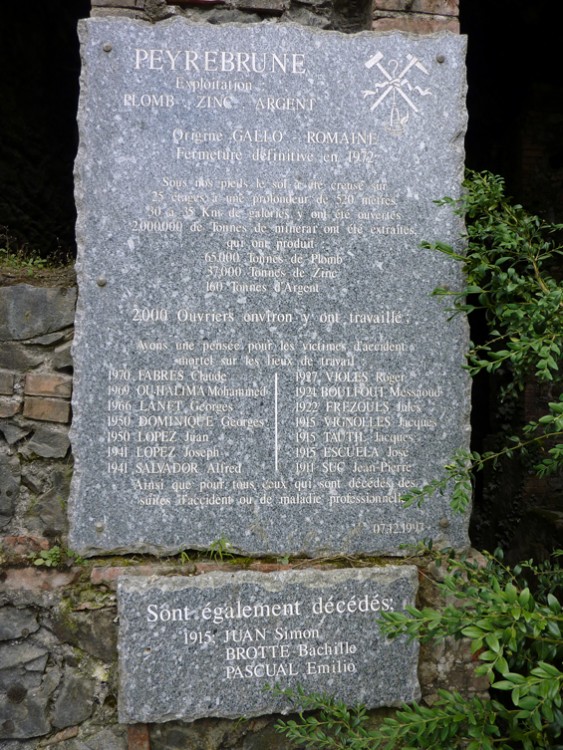 PEYREBRUNE
Exploitation
PLOMB - ZINC - ARGENT
Origine "GALLO" - ROMAINE
Fermeture définitive en 1972
Sous nos pieds le sol a été creusé sur
25 étages à une profondeur de 520 mètres
30 à 35 Kms de galeries y ont été ouvertes
2.000.000 de Tonnes de minerai ont été extraites,
qui ont produit :
65.000 Tonnes de Plomb
37.000 Tonnes de Zinc
160 Tonnes d'Argent
2.000 Ouvriers environ y ont travaillé :
Ayons une pensée pour les victimes d'accident
mortel sur les lieux de travail
1970 FABRES Claude
1969 OUHALIMA Mohammed
1966 LANET Georges
1950 DOMINIQUE Georges
1950 LOPEZ Juan
1941 LOPEZ Joseph
1941 SALVADOR Alfred
1927 VIOLES Roger
1924 BOULFOUL Messaoud
1922 FREZOULS Jules
1915 VIGNOLLES Jacques
1915 TAUTIL Jacques
1915 ESCUELA José
1911 SUC Jean-Pierre
Ainsi que pour tous ceux qui sont décédés des
suites d'accident ou de maladie professionnelle
07.12.
Sont également décédés:
1915: JUAN Simon
BROTTE Bachille
PASCUAL Emilio